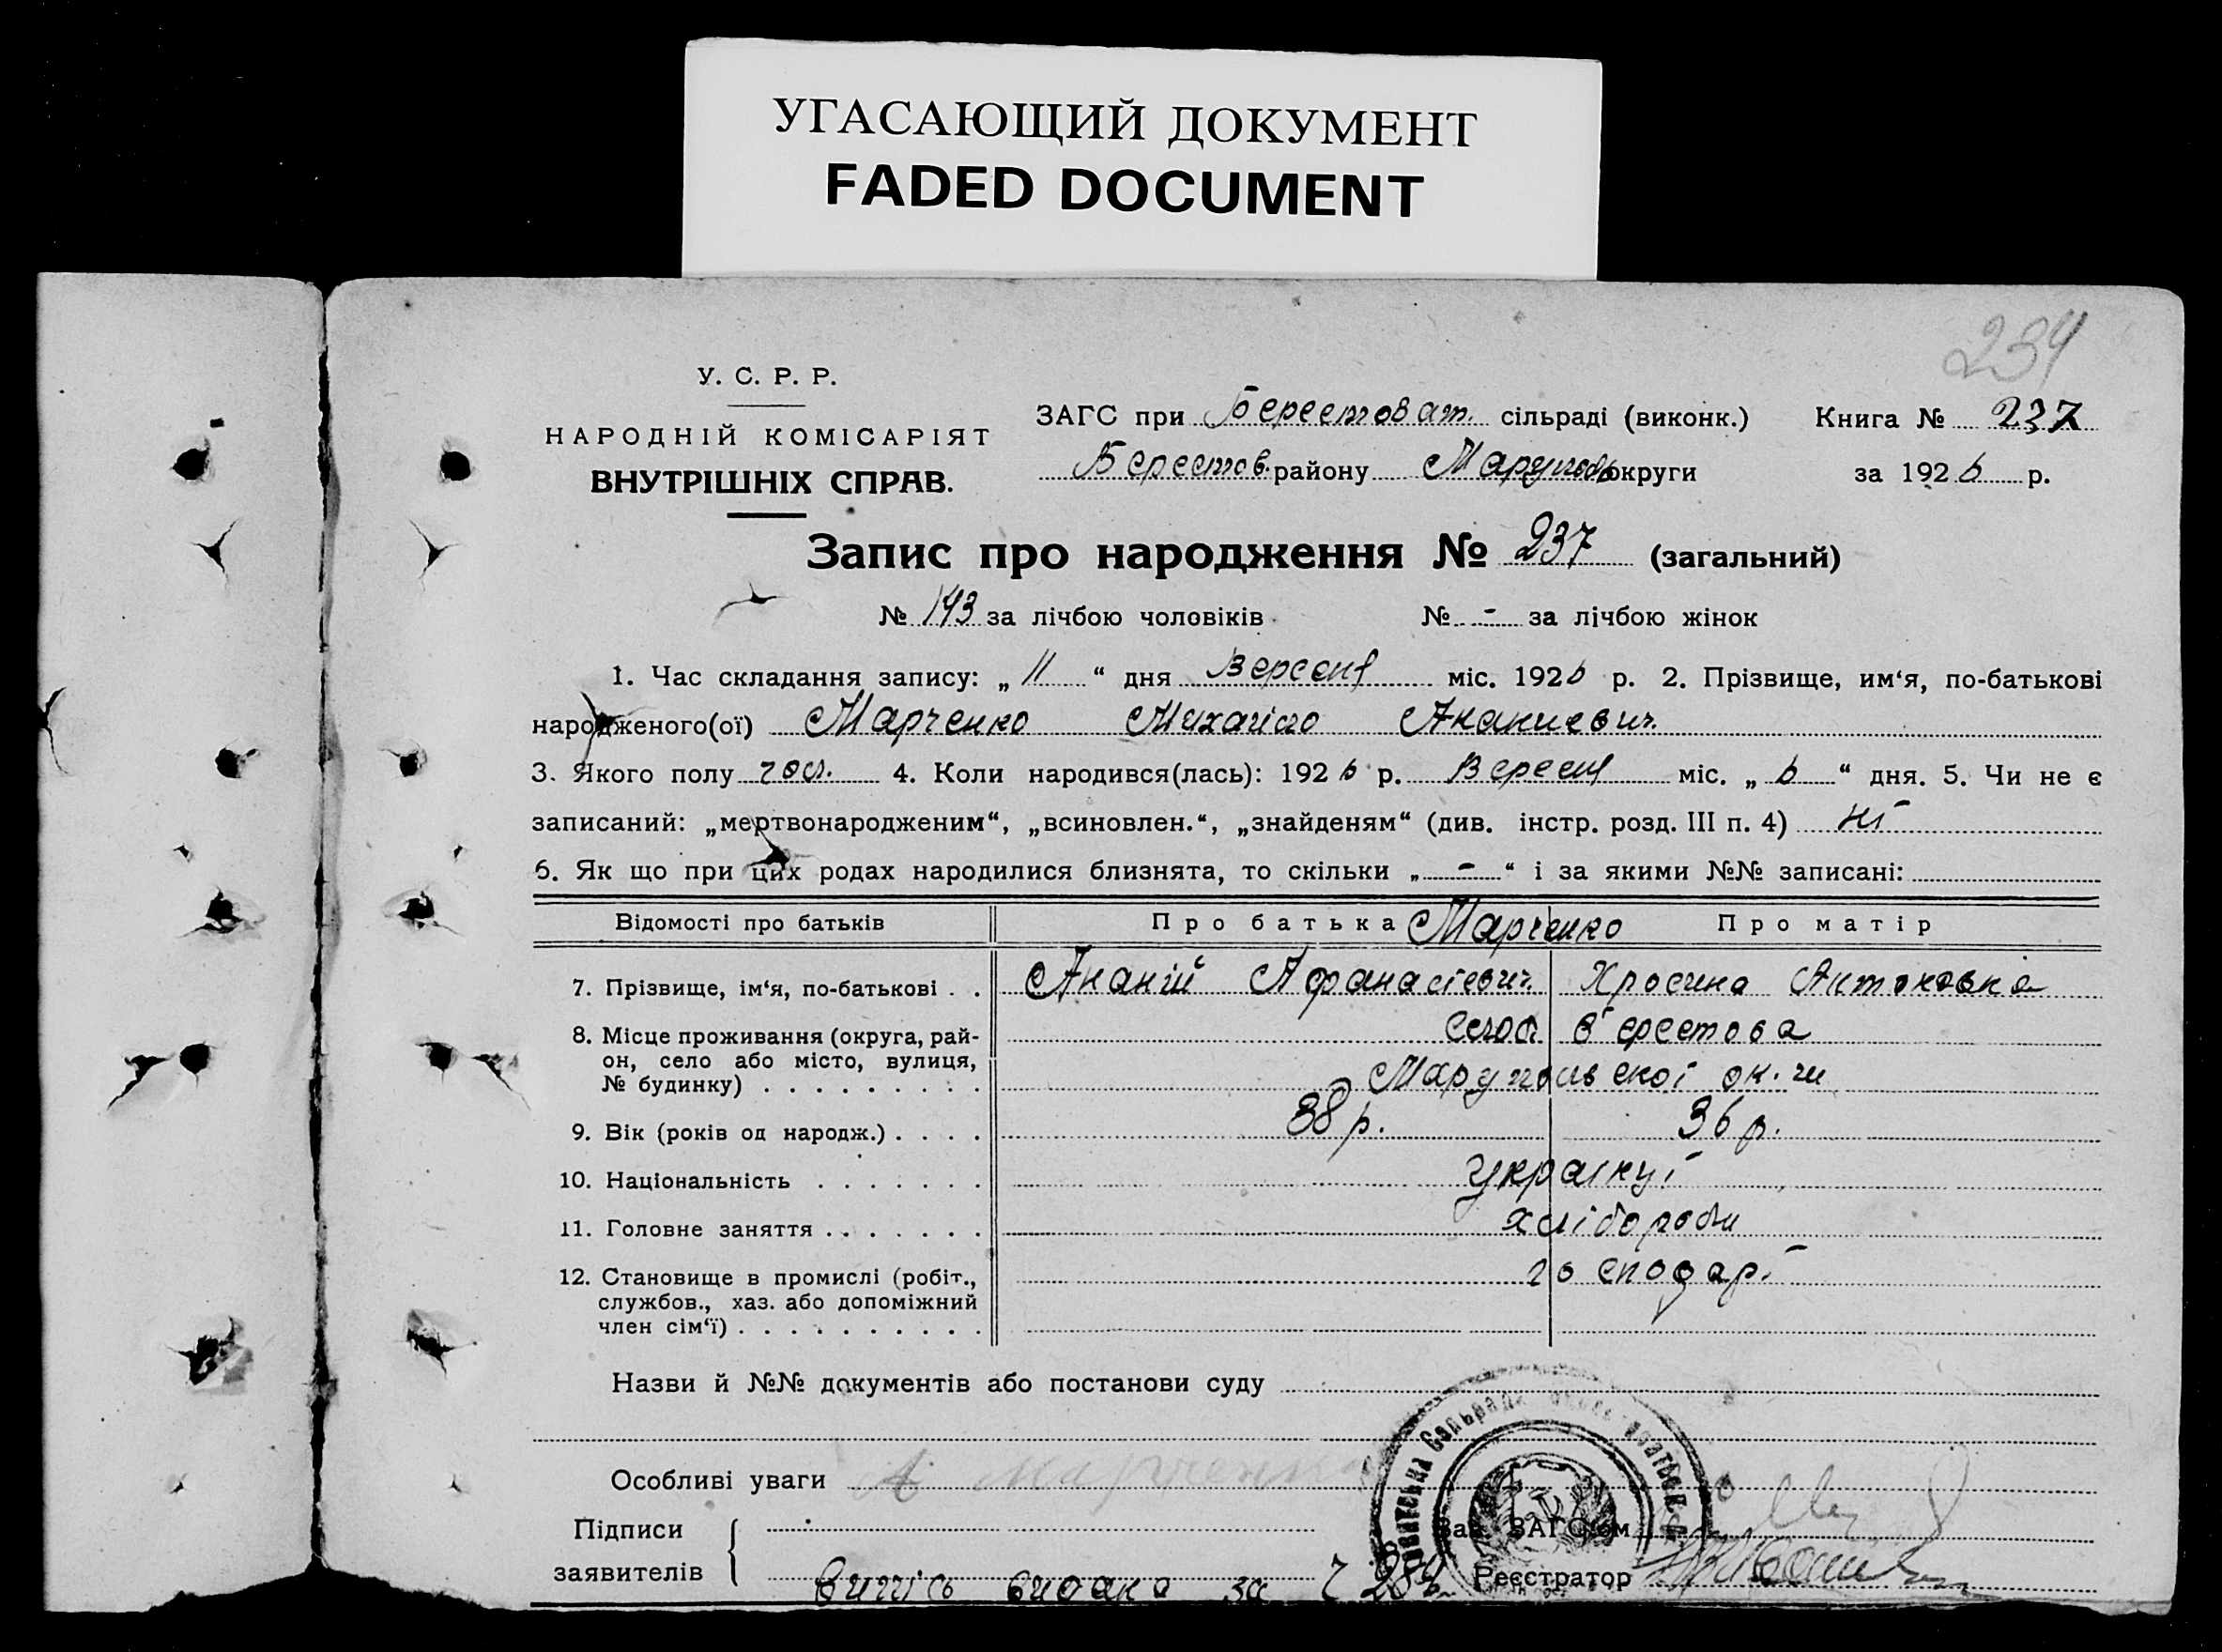 УГАСАЮЩИЙ ДОКУМЕНТ
FADED DOCUMENT
234
У. С. Р. Р.
НАРОДНІЙ КОМІСАРІЯТ
ВНУТРІШНІХ СПРАВ.
ЗАГС при Берестоват. сільраді (виконк.) Книга № 237
Берестов. району Маруполь округи за 1926 р.
Запис про народження № 237 (загальний)
№ 143 за лічбою чоловіків № - за лічбою жінок
1. Час складання запису: „ 11 “ дня Вересня міс. 1926 р. 2. Прізвище, им‘я, по-батькові
народженого(ої) Марченко Михайло Ананиевич.
3. Якого полу чол. 4. Коли народився(лась): 1926 р. Вересня міс. „ 6 “ дня. 5. Чи не є
записаний: „мертвонародженим“, „всиновлен.“, „знайденям“ (див. інстр. розд. III п. 4) ні
6. Як що при цих родах народилися близнята, то скільки „ - “ і за якими №№ записані:
Відомості про батьків Про батька Марченко Про матір
7. Прізвище, ім‘я, по-батькові . . Ананій Афанасієвич. Хросина Антоновна
8. Місце проживання (округа, рай-
он, село або місто, вулиця,
№ будинку) . . . . . . . . .
село Берестова
Марупольскої ок.ги
9. Вік (років од народж.) . . . . 38 р. 36 р.
10. Національність . . . . . . . українці
11. Головне заняття . . . . . . . хлібороби
12. Становище в промислі (робіт.,
службов., хаз. або допоміжний
член сім‘ї) . . . . . . . . . .
господарі
Назви й №№ документів або постанови суду
Особливі уваги А Марченко
Підписи
заявителів
Зав. ЗАГС‘ом
Реєстратор
випісь видана за ч 284